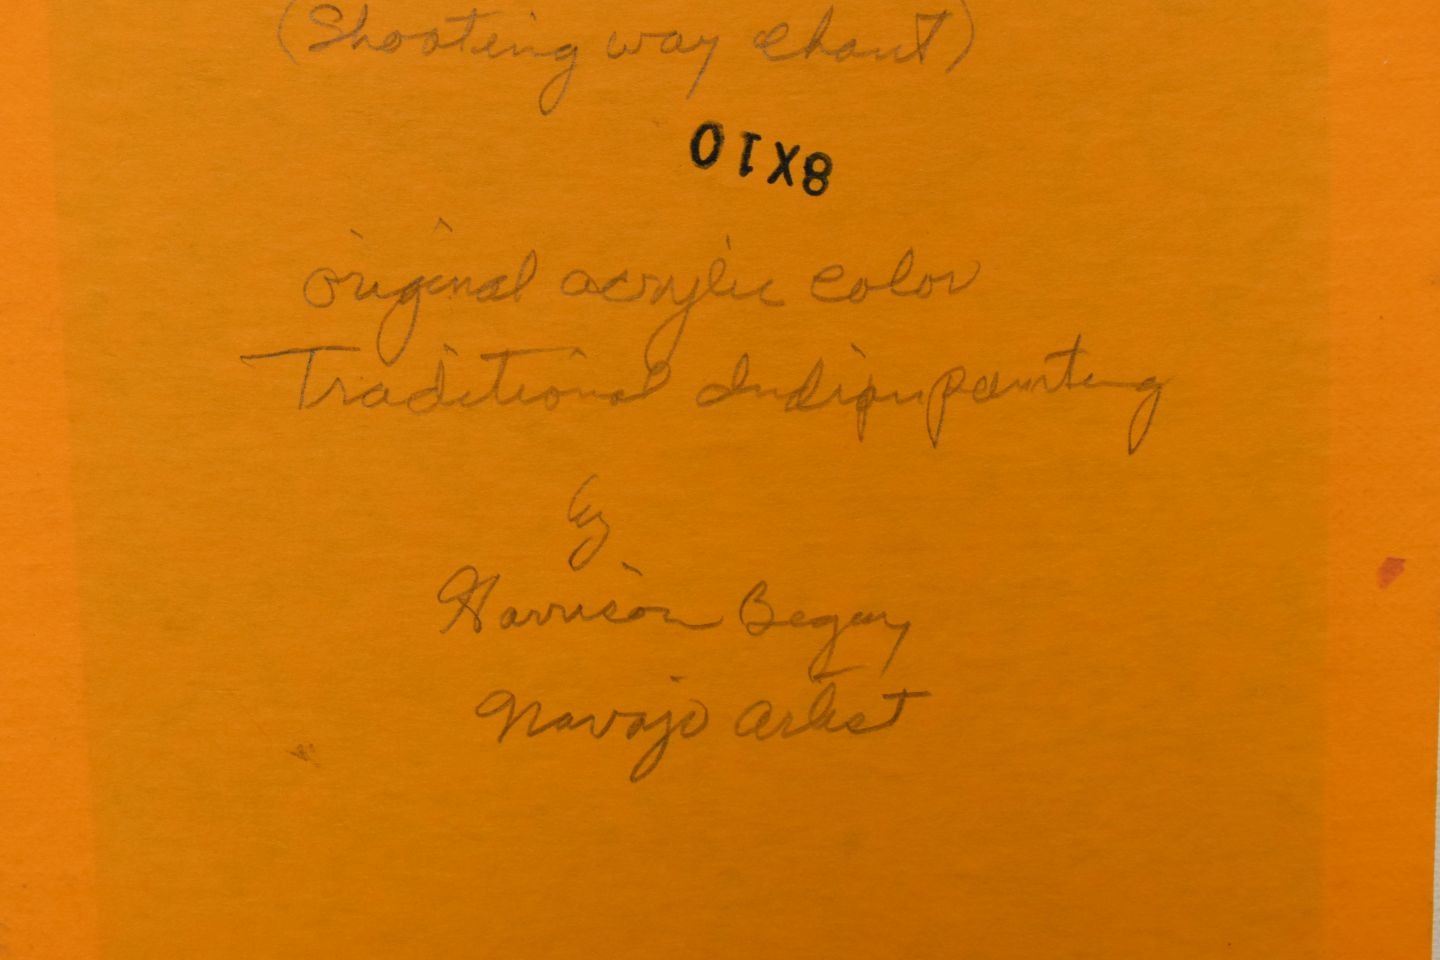 (Shooting way chant)
8X10
original acrylic color
Traditional Indian painting
by
Harrison Begay
Navajo Artist